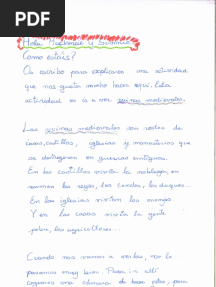 PDF
Hola
y
Como estáis?
Os escribo para explicaros una actividad
que nos gusta mucho hacer aquí. Esta
actividad es ir a ver ruinas medievales.
Las ruinas medievales son restos de
casas, castillos, iglesias y monasterios que
se destruyeron en guerras antiguas.
En los castillos vivía la nobleza, en
resumen los reyes, los condes, los duques...
En las iglesias vivían los monjes.
Y en las casas vivía la gente
pobre, los agricultores...
Cuando nos vamos a verlas, no lo
pasamos muy bien. Para ir allí
cogemos una cámara de hacer fotos, para